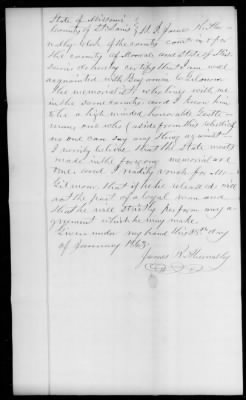 State of Missouri
County of St Louis } I James
County Clerk of the county court in & for
the county of and State of Mis-
souri do hereby certify that I am well
acquainted with Benjamin
the memorialist, who lives with me
in the same county and I know him
to be a high minded honorable Gentle-
man, one who (aside from this rebellion)
no one can say any thing against
I verily believe that the State ments
made in the foregoing memorial are
true and I readily vouch for Mr
that if he be released will
act the part of a loyal man and
that he will strictly perform any a-
greement which he may make.
Given under my hand this 28th day
of January 1863.
James R.